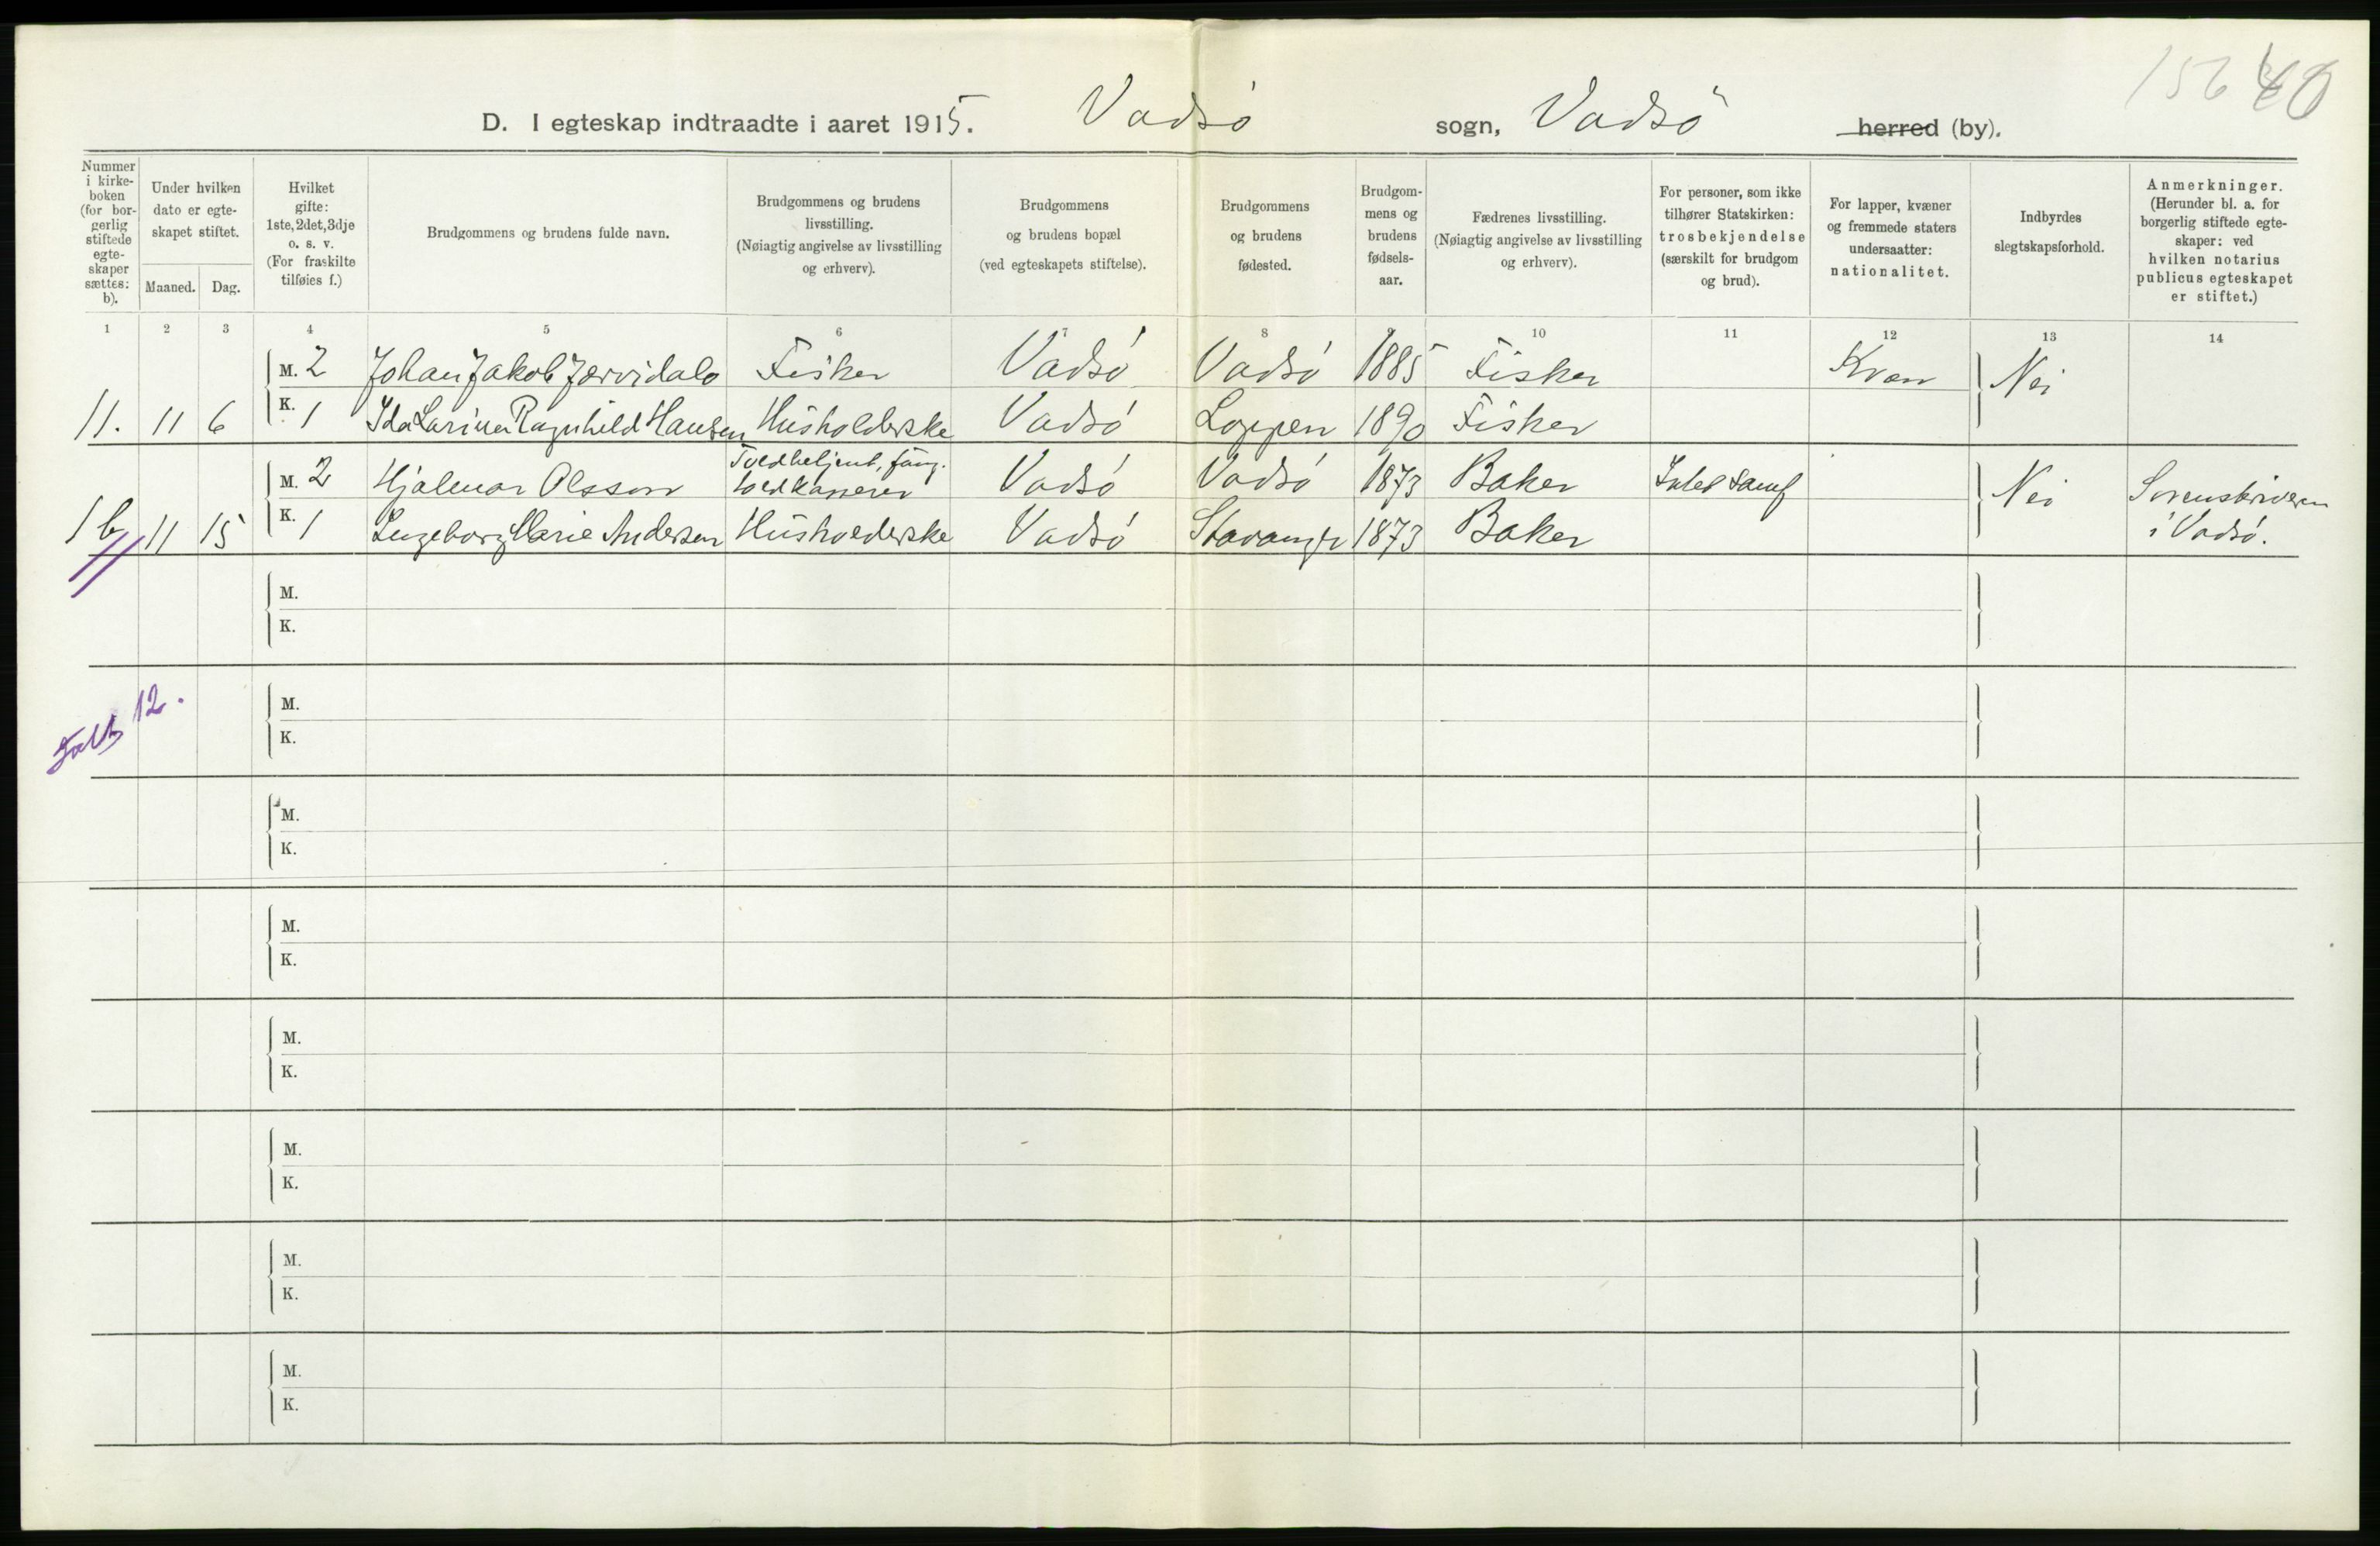 156 40
D. I egteskap indtraadte i aaret 1915. Vadsö sogn, Vadsö herred (by).
Nummer i kirke-boken (for bor-gerlig stiftede egte-skaper sættes: b).
Under hvilken dato er egte-skapet stiftet.
Maaned. Dag.
Hvilket gifte: 1ste, 2det, 3dje o. s. v. (For fraskilte tilføies f.)
Brudgommens og brudens fulde navn.
Brudgommens og brudens livsstilling. (Nøiagtig angivelse av livsstilling og erhverv).
Brudgommens og brudens bopæl (ved egteskapets stiftelse).
Brudgommens og brudens fødested.
Brudgom-mens og brudens fødsels-aar.
Fædrenes livsstilling. (Nøiagtig angivelse av livsstilling og erhverv).
For personer, som ikke tilhører Statskirken: trosbekjendelse (særskilt for brudgom og brud).
For lapper, kvæner og fremmede staters undersaatter: nationalitet.
Indbyrdes slegtskapsforhold.
Anmerkninger. (Herunder bl. a. for borgerlig stiftede egte-skaper: ved hvilken notarius publicus egteskapet er stiftet.)
1 2 3 4 5 6 7 8 9 10 11 12 13 14
M. 2 Johan Jakob Jærvidalo Fisker Vadsö Vadsö 1885 Fisker Kvæn Nei
11. 11 6 K. 1 Ida Larina Ragnhild Hansen Husholderske Vadsö Loppen 1890 Fisker
Toldbetjent, fung.
M. 2 Hjalmar Olsson toldkasserer Vadsö Vadsö 1873 Baker Nei Sorenskriveren
1 b 11 15 K. 1 Ingeborg Marie Andersen Husholderske Vadsö Stavanger 1873 Baker i Vadsö.
M.
K.
Ialt 12.
M.
K.
M.
K.
M.
K.
M.
K.
M.
K.
M.
K.
M.
K.